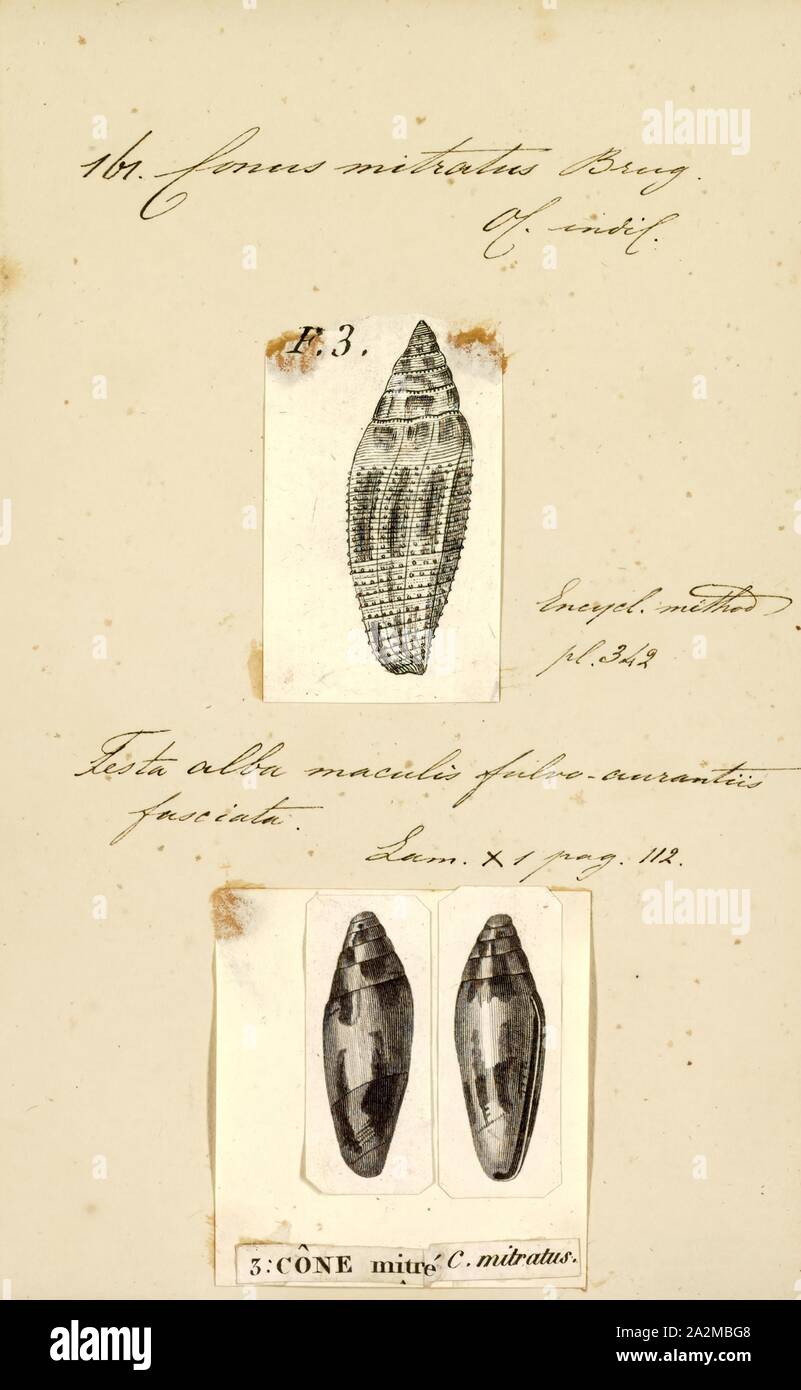 161. Conus mitratus Brug.
O. indic.
F. 3.
Encycl. method
pl. 342
Testa alba maculis fulvo-aurantiis
fasciata.
Lam. X 1 pag. 112.
3: CÔNE mitré C. mitratus.
alamy
Image ID: 2A2MBG8
www.alamy.com